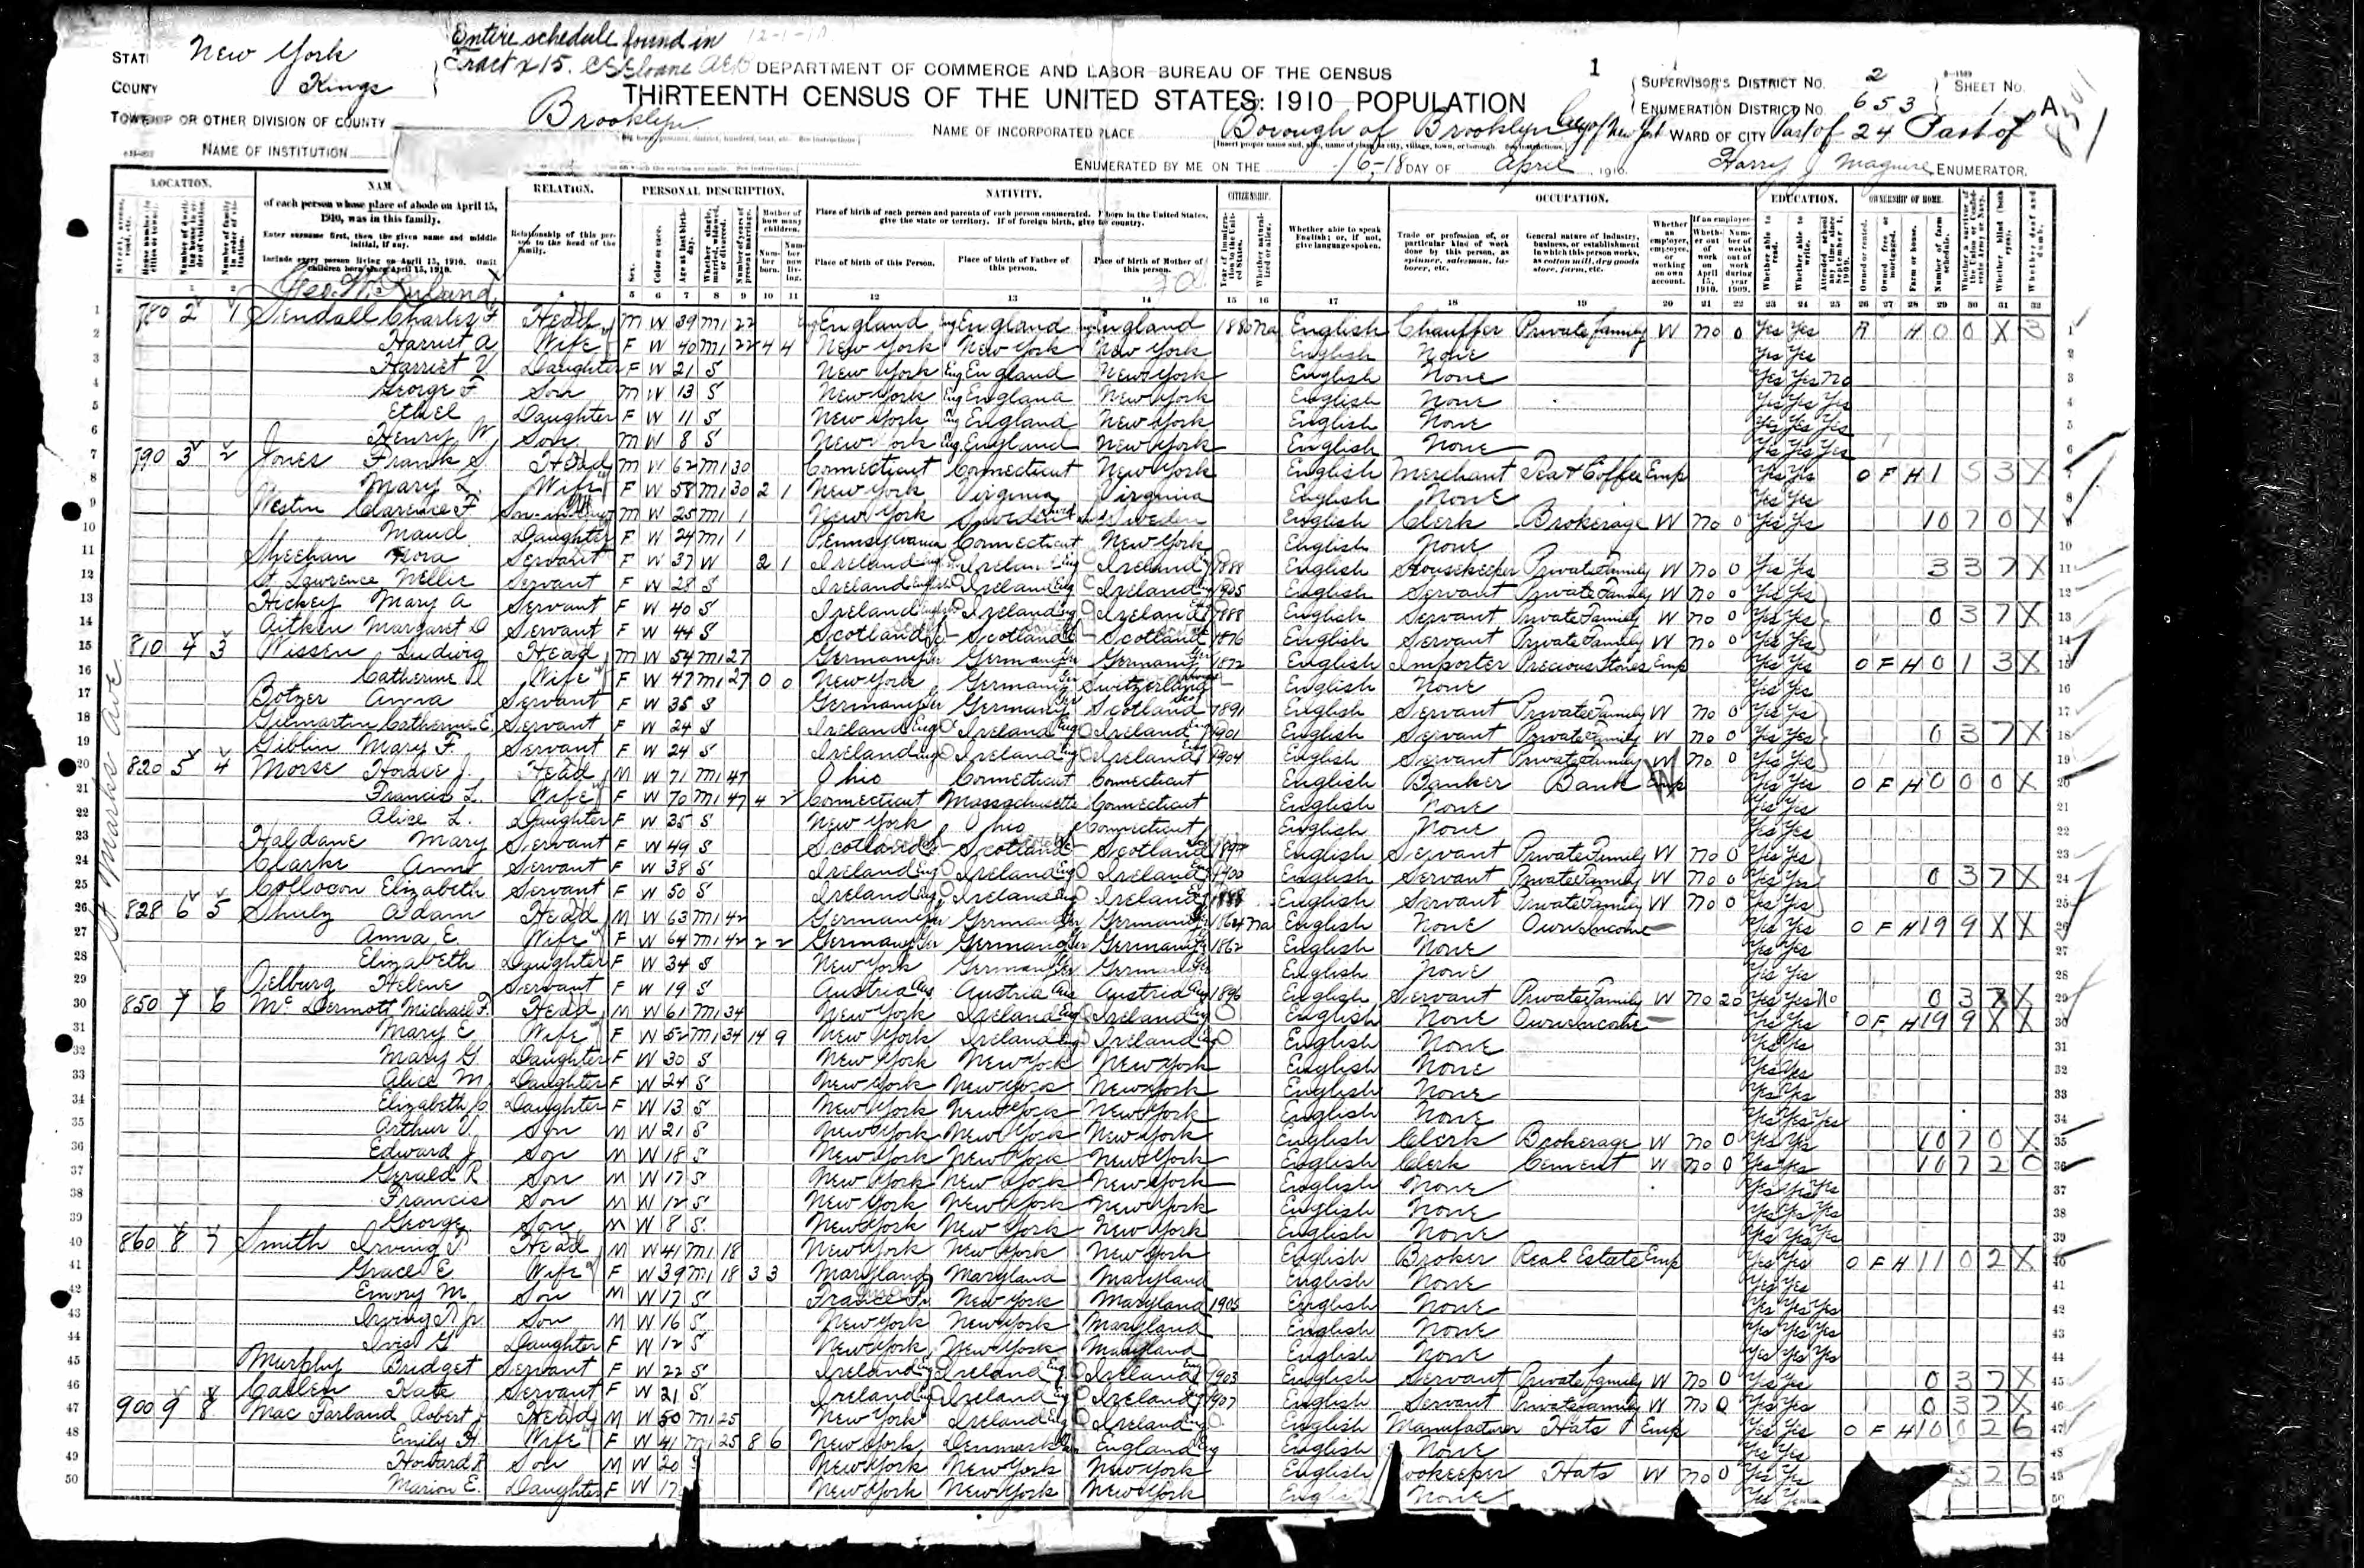 Entire schedule found in 12-1-10
Tract x15. C S Sloane
STATE New York
COUNTY Kings
TOWNSHIP OR OTHER DIVISION OF COUNTY Brooklyn
NAME OF INSTITUTION
DEPARTMENT OF COMMERCE AND LABOR-BUREAU OF THE CENSUS
THIRTEENTH CENSUS OF THE UNITED STATES: 1910 POPULATION
NAME OF INCORPORATED PLACE Borough of Brooklyn City of New York
ENUMERATED BY ME ON THE 16-18 DAY OF April, 1910.
1
SUPERVISOR'S DISTRICT No. 2 SHEET No.
ENUMERATION DISTRICT No. 653 1 A
WARD OF CITY Part of 24 Part of
Harry J Maguire, ENUMERATOR.
LOCATION. NAME RELATION. PERSONAL DESCRIPTION. NATIVITY. CITIZENSHIP. OCCUPATION. EDUCATION. OWNERSHIP OF HOME.
of each person whose place of abode on April 15, 1910, was in this family.
Enter surname first, then the given name and middle initial, if any.
Include every person living on April 15, 1910. Omit children born since April 15, 1910.
Relationship of this person to the head of the family.
Place of birth of each person and parents of each person enumerated. If born in the United States, give the state or territory. If of foreign birth, give the country.
Place of birth of this Person. Place of birth of Father of this person. Place of birth of Mother of this person.
Whether able to speak English; or, if not, give language spoken.
Trade or profession of, or particular kind of work done by this person, as spinner, salesman, laborer, etc.
General nature of industry, business, or establishment in which this person works, as cotton mill, dry goods store, farm, etc.
St Marks Ave
1 780 2 1 Sendall Charles F Head M W 39 M1 22 England England England 1880 Na English Chauffer Private family W No 0 Yes Yes R H 0 0 X 3
2 Harriet A Wife F W 40 M1 22 4 4 New York New York New York English None Yes Yes
3 Harriet V Daughter F W 21 S New York England New York English None Yes Yes No
4 George F Son M W 13 S New York England New York English None Yes Yes Yes
5 Ethel Daughter F W 11 S New York England New York English None Yes Yes Yes
6 Henry W Son M W 8 S New York England New York English None Yes Yes Yes
7 790 3 2 Jones Frank S Head M W 62 M1 30 Connecticut Connecticut New York English Merchant Tea & Coffee Emp Yes Yes O F H 1 5 3 X
8 Mary L. Wife F W 58 M1 30 2 1 New York Virginia Virginia English None Yes Yes
9 Westin Clarence F Son-in-law M W 25 M1 1 New York Sweden Sweden English Clerk Brokerage W No 0 Yes Yes 10 7 0 X
10 Maud Daughter F W 24 M1 1 Pennsylvania Connecticut New York English None
11 Sheehan Nora Servant F W 37 W 2 1 Ireland Ireland Ireland 1888 English Housekeeper Private Family W No 0 Yes Yes 3 3 7 X
12 St Lawrence Nellie Servant F W 28 S Ireland Ireland Ireland 1905 English Servant Private Family W No 0 Yes Yes
13 Hickey Mary A Servant F W 40 S Ireland Ireland Ireland 1888 English Servant Private Family W No 0 Yes Yes 0 3 7 X
14 Aitken Margaret Servant F W 44 S Scotland Scotland Scotland 1876 English Servant Private Family W No 0 Yes Yes
15 810 4 3 Nissen Ludwig Head M W 54 M1 27 Germany Germany Germany 1872 English Importer Precious Stones Emp Yes Yes O F H 0 1 3 X
16 Catherine Wife F W 47 M1 27 0 0 New York Germany Switzerland English None Yes Yes
17 Botzer Anna Servant F W 35 S Germany Germany Scotland 1891 English Servant Private Family W No 0 Yes Yes
18 Gilmartin Catherine E. Servant F W 24 S Ireland Ireland Ireland 1901 English Servant Private Family W No 0 Yes Yes 0 3 7 X
19 Giblin Mary F. Servant F W 24 S Ireland Ireland Ireland 1904 English Servant Private Family W No 0 Yes Yes
20 820 5 4 Morse Horace J. Head M W 71 M1 47 Ohio Connecticut Connecticut English Banker Bank Emp Yes Yes O F H 0 0 0 X
21 Francis L. Wife F W 70 M1 47 4 2 Connecticut Massachusetts Connecticut English None Yes Yes
22 Alice L. Daughter F W 35 S New York Ohio Connecticut English None Yes Yes
23 Haldane Mary Servant F W 49 S Scotland Scotland Scotland English Servant Private Family W No 0 Yes Yes
24 Clarke Anne Servant F W 38 S Ireland Ireland Ireland 1900 English Servant Private Family W No 0 Yes Yes 0 3 7 X
25 Collocon Elizabeth Servant F W 50 S Ireland Ireland Ireland 1888 English Servant Private Family W No 0 Yes Yes
26 828 6 5 Shulz Adam Head M W 63 M1 42 Germany Germany Germany 1864 Na English None Own Income Yes Yes O F H 19 9 X X
27 Anna E. Wife F W 64 M1 42 2 2 Germany Germany Germany 1862 English None Yes Yes
28 Elizabeth Daughter F W 34 S New York Germany Germany English None Yes Yes
29 Oelburg Helene Servant F W 19 S Austria Austria Austria 1896 English Servant Private Family W No 20 Yes Yes No 0 3 7 X
30 850 7 6 McDermott Michael F. Head M W 61 M1 34 New York Ireland Ireland English None Own Income Yes Yes O F H 19 9 X X
31 Mary E Wife F W 52 M1 34 14 9 New York Ireland Ireland English None Yes Yes
32 Mary G Daughter F W 30 S New York New York New York English None Yes Yes
33 Alice M Daughter F W 24 S New York New York New York English None Yes Yes
34 Elizabeth Daughter F W 13 S New York New York New York English None Yes Yes Yes
35 Arthur V. Son M W 21 S New York New York New York English Clerk Brokerage W No 0 Yes Yes 10 7 0 X
36 Edward J Son M W 18 S New York New York New York English Clerk Cement W No 0 Yes Yes 10 7 2 0
37 Gerald R Son M W 17 S New York New York New York English None Yes Yes Yes
38 Francis Son M W 12 S New York New York New York English None Yes Yes Yes
39 George Son M W 8 S New York New York New York English None Yes Yes Yes
40 860 8 7 Smith Irving Head M W 41 M1 18 New York New York New York English Broker Real Estate Emp Yes Yes O F H 11 0 2 X
41 Grace E Wife F W 39 M1 18 3 3 Maryland Maryland Maryland English None Yes Yes
42 Emory M. Son M W 17 S France New York Maryland 1905 English None Yes Yes Yes
43 Irving Jr. Son M W 16 S New York New York Maryland English None Yes Yes Yes
44 G Daughter F W 12 S New York New York Maryland English None Yes Yes Yes
45 Murphy Bridget Servant F W 22 S Ireland Ireland Ireland 1903 English Servant Private family W No 0 Yes Yes 0 3 7 X
46 Callen Kate Servant F W 21 S Ireland Ireland Ireland 1907 English Servant Private family W No 0 Yes Yes 0 3 7 X
47 900 9 8 Mac Farland Robert Head M W 50 M1 25 New York Ireland Ireland English Manufacturer Hats Emp Yes Yes O F H 10 0 2 6
48 Emily H. Wife F W 41 M1 25 8 6 New York Denmark England English None Yes Yes
49 Howard R Son M W 20 New York New York New York English Bookeeper Hats W No 0 Yes Yes 5 2 6
50 Marion E. Daughter F W 17 New York New York New York English None